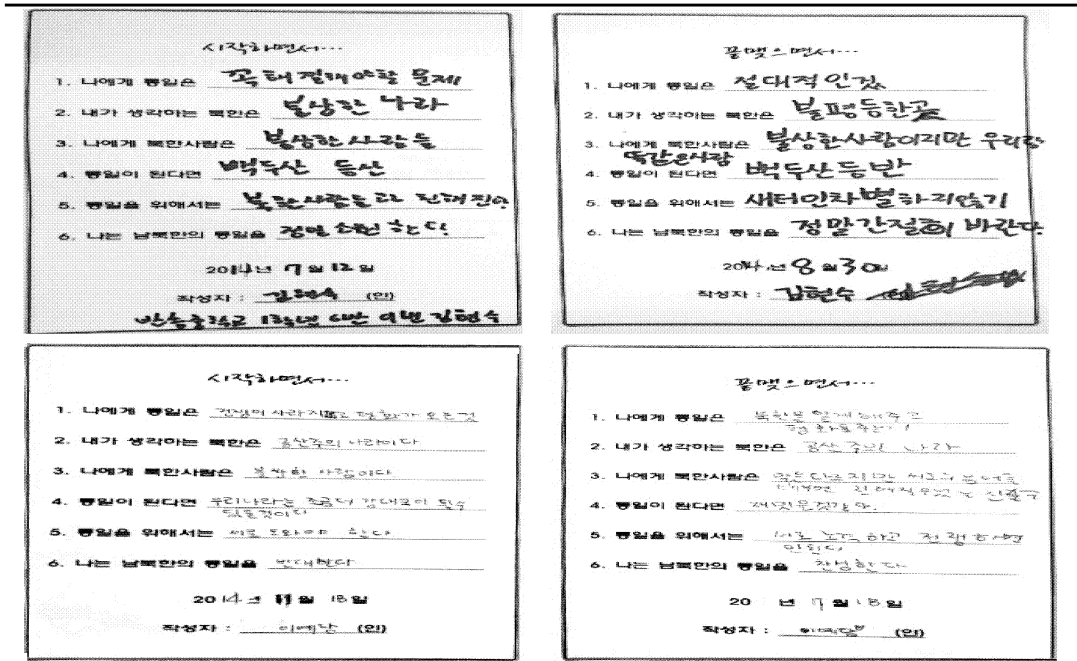 시작하면서...
1. 나에게 통일은 꼭 해야할 문제
2. 내가 생각하는 북한은 불상한 나라
3. 나에게 북한사람은 불상한 사람들
4. 통일이 된다면 백두산 등산
5. 통일을 위해서는 북한사람들과 친해진다
6. 나는 남북한의 통일을 정말 소원한다.
2014년 7월 12일
작성자 : 김현수 (인)
반송중학교 1학년 6반 9번 김현수
끝맺으면서...
1. 나에게 통일은 절대적인것
2. 내가 생각하는 북한은 불평등한곳
3. 나에게 북한사람은 불상한사람이지만 우리랑
똑같은사람
4. 통일이 된다면 백두산등반
5. 통일을 위해서는 새터인차별하지않기
6. 나는 남북한의 통일을 정말간절히 바란다.
2014년 8월30일
작성자 : 김현수
시작하면서...
1. 나에게 통일은 전쟁이 사라지고 평화가 오는것
2. 내가 생각하는 북한은 공산주의 나라이다
3. 나에게 북한사람은 불쌍한 사람이다
4. 통일이 된다면 우리나라는 조금더 강대국이 될수
있을것이다
5. 통일을 위해서는 서로 도와야 한다
6. 나는 남북한의 통일을 반대한다
2014년 월 18일
작성자 : (인)
끝맺으면서...
1. 나에게 통일은 북한을 알게해주고
2. 내가 생각하는 북한은 공산주의 나라
3. 나에게 북한사람은
4. 통일이 된다면 재밌을것같다.
5. 통일을 위해서는 서로 노력하고 전쟁하면
안된다
6. 나는 남북한의 통일을 찬성한다
20 년 7월 18일
작성자 : (인)